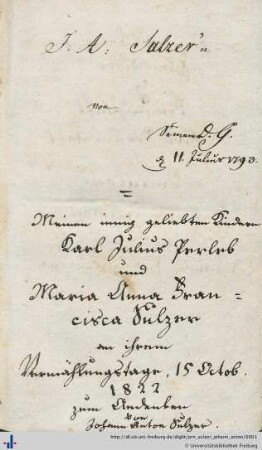 J. A. Sulzer'n
von
D. G.
d. 11. Julius 1793.
=
Meinen innig geliebten Kindern
Karl Julius Perleb
und
Maria Anna Fran=
cisca Sulzer
an ihrem
Vermählungstage, 15 Octob.
1822
zum Andenken
von
Johann Anton Sulzer.
http://dl.ub.uni-freiburg.de/diglit/poe_sulzer_johann_anton/0001
© Universitätsbibliothek Freiburg